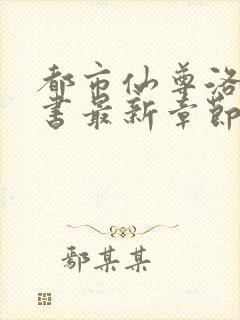 都市仙尊洛
書最新章節
鄢某某